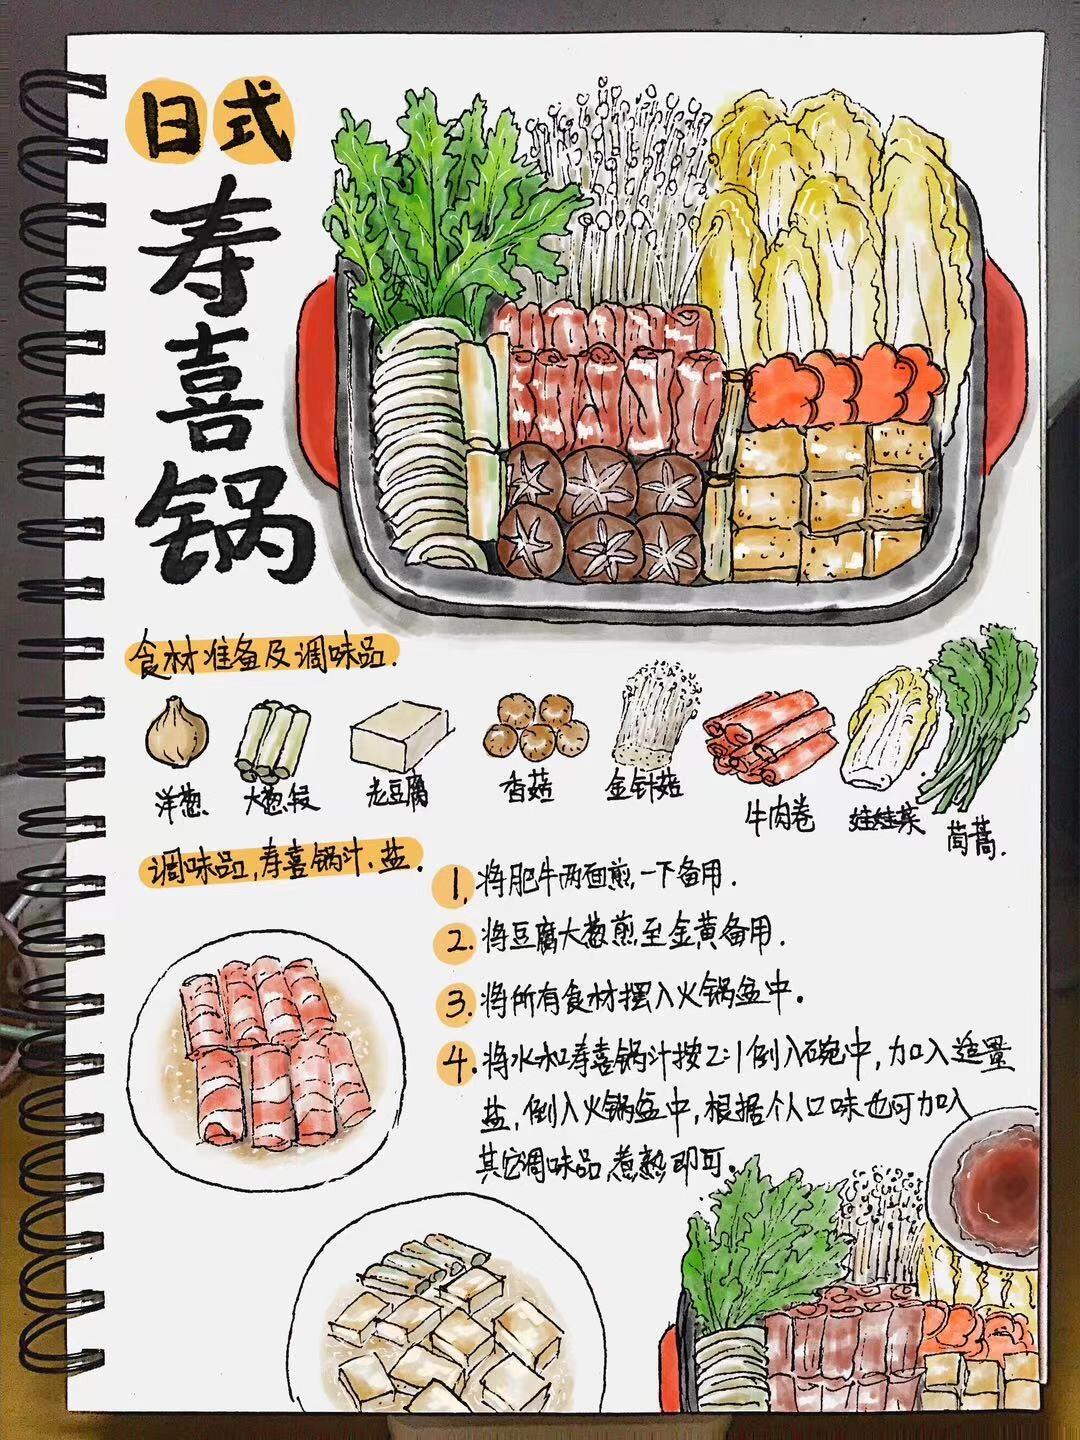 日式
寿喜锅
食材准备及调味品.
洋葱
大葱段
老豆腐
香菇
金针菇
牛肉卷
娃娃菜
茼蒿.
调味品,寿喜锅汁、盐.
1, 将肥牛两面煎一下备用.
2. 将豆腐大葱煎至金黄备用.
3. 将所有食材摆入火锅盆中。
4. 将水和寿喜锅汁按2:1倒入碗中,加入适量
盐,倒入火锅盆中,根据个人口味也可加入
其它调味品,煮熟即可。